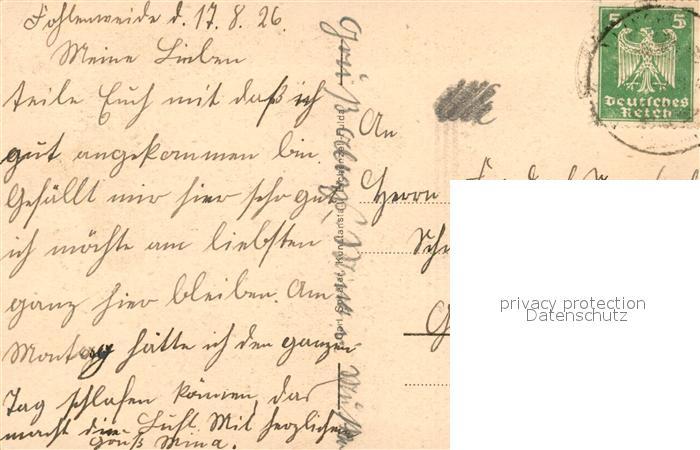 Fohlenweide d. 17.8.26.
Meine Lieben
teile Euch mit daß ich
gut angekommen bin.
Gefällt mir hier sehr gut,
ich möchte am liebsten
ganz hier bleiben. Am
Montag hätte ich den ganzen
Tag schlafen können, das
macht die Luft. Mit herzlichem
Gruß Mina.
Gruß
An
Herrn
5 5
Deutsches
Reich
privacy protection
Datenschutz